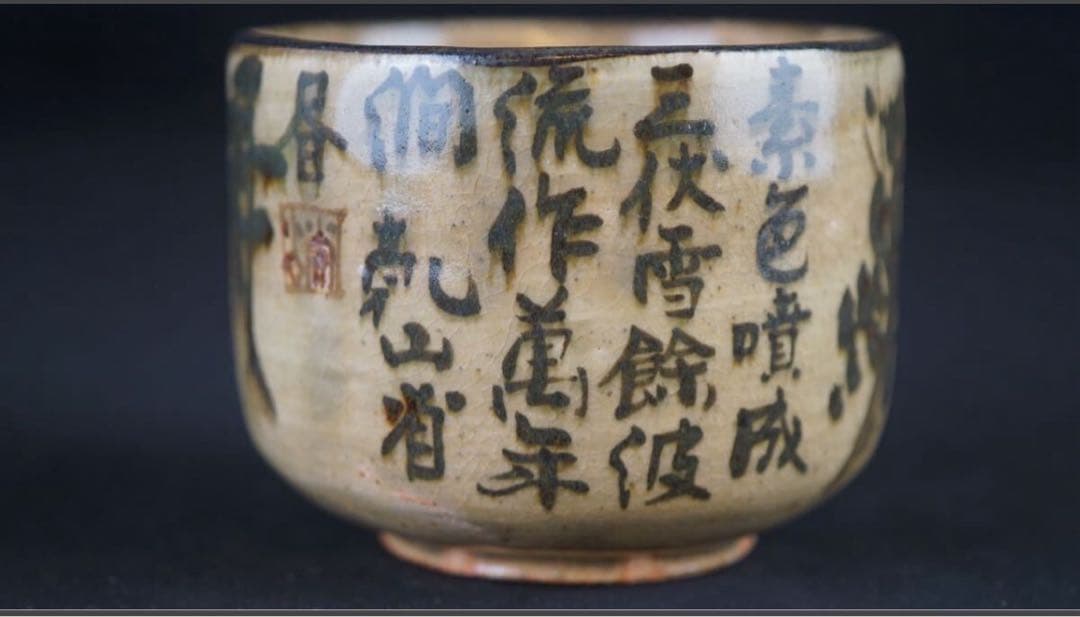 素色噴成
三伏雪餘波
流作萬年
澗 乾山省